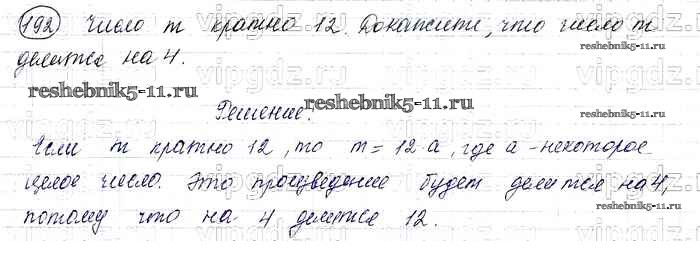 192 Число m кратно 12. Докажите, что число m
делится на 4.
reshebnik5-11.ru
reshebnik5-11.ru
Решение:
reshebnik5-11.ru
reshebnik5-11.ru
Если m кратно 12, то m = 12·a, где a - некоторое
целое число. Это произведение будет делится на 4,
потому что на 4 делится 12.
reshebnik5-11.ru
vipgdz.ru